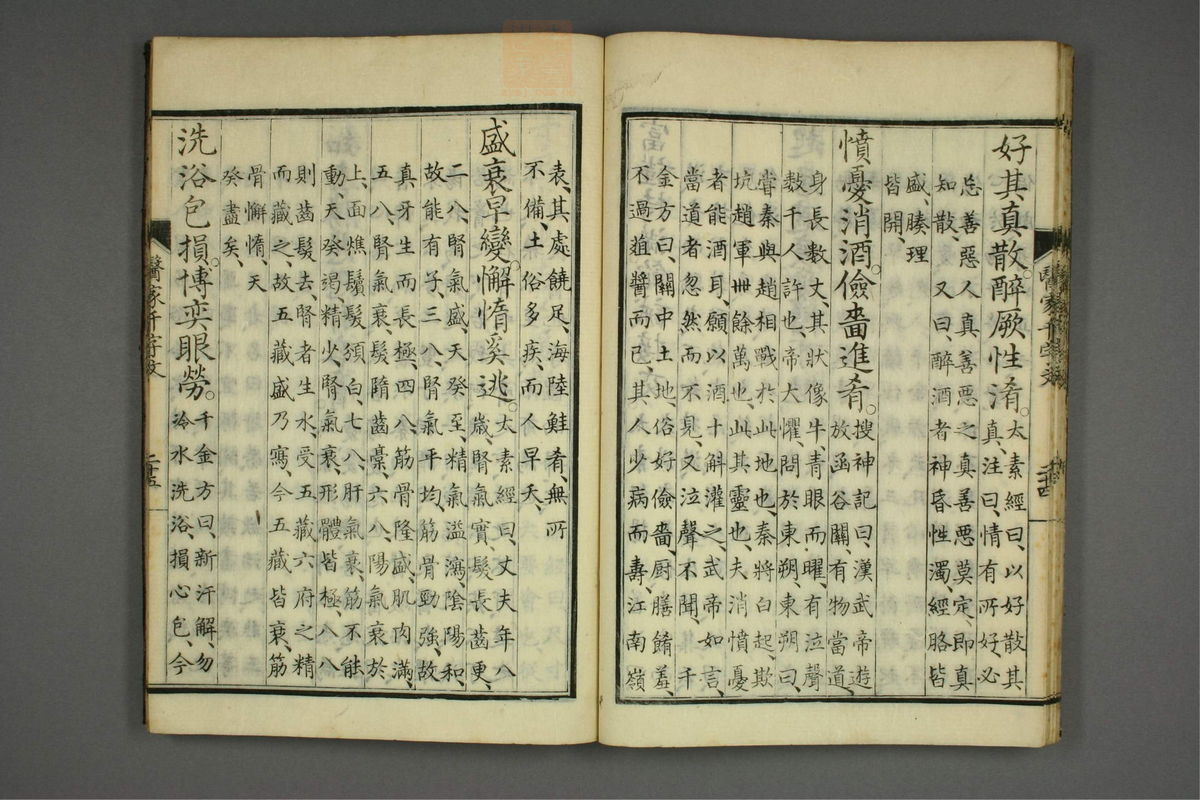 好其真散。醉厥性淆。
太素經曰、以好散其
真、注曰、情有所好、必
忘善惡人真善惡之真善惡莫定、即真
如散、又曰、醉酒者神昏性濁、經胳皆
盛、腠理
皆開、
憤憂消酒。儉嗇進肴。
搜神記曰、漢武帝遊
放函谷關、有物當道、
身長數丈、其狀像牛青眼而曜、有泣聲
數千人許也、帝大懼、問於東朔、東朔曰、
甞秦與趙相戰於此地也、秦將白起欺
坑趙軍卌餘萬也、此其靈也、夫消憤憂
者能酒耳、願以酒十斛灌之、武帝如言、
當道者忽然而不見、又泣聲不聞、千
金方曰、關中土地、俗好儉嗇、厨膳餚羞、
不過葅醬而已、其人少病而壽、江南嶺
表、其處饒足、海陸鮭肴、無所
不備、土俗多疾、而人早夭、
盛衰早變。懈惰奚逃。
太素經曰、丈夫年八
歲腎氣實、髮長齒更、
二八、腎氣盛天癸至、精氣溢瀉、陰陽和、
故能有子、三八、腎氣平均、筋骨勁強、故
真牙生而長極、四八、筋骨隆盛、肌肉滿、
五八、腎氣衰、髮隋齒槀、六八、陽氣衰於
上、面焦鬚髮頒白、七八、肝氣衰、筋不能
動、天癸竭、精少、腎氣衰、形體皆極、八八
則齒髮去、腎者生水、受五藏六府之精
而藏之、故五藏盛乃寫、今五藏皆衰、筋
骨懈惰、天
癸盡矣、
洗浴包損。博奕眼勞。
千金方曰、新汗解、勿
冷水洗浴、損心包、今
醫家千字文
二十五